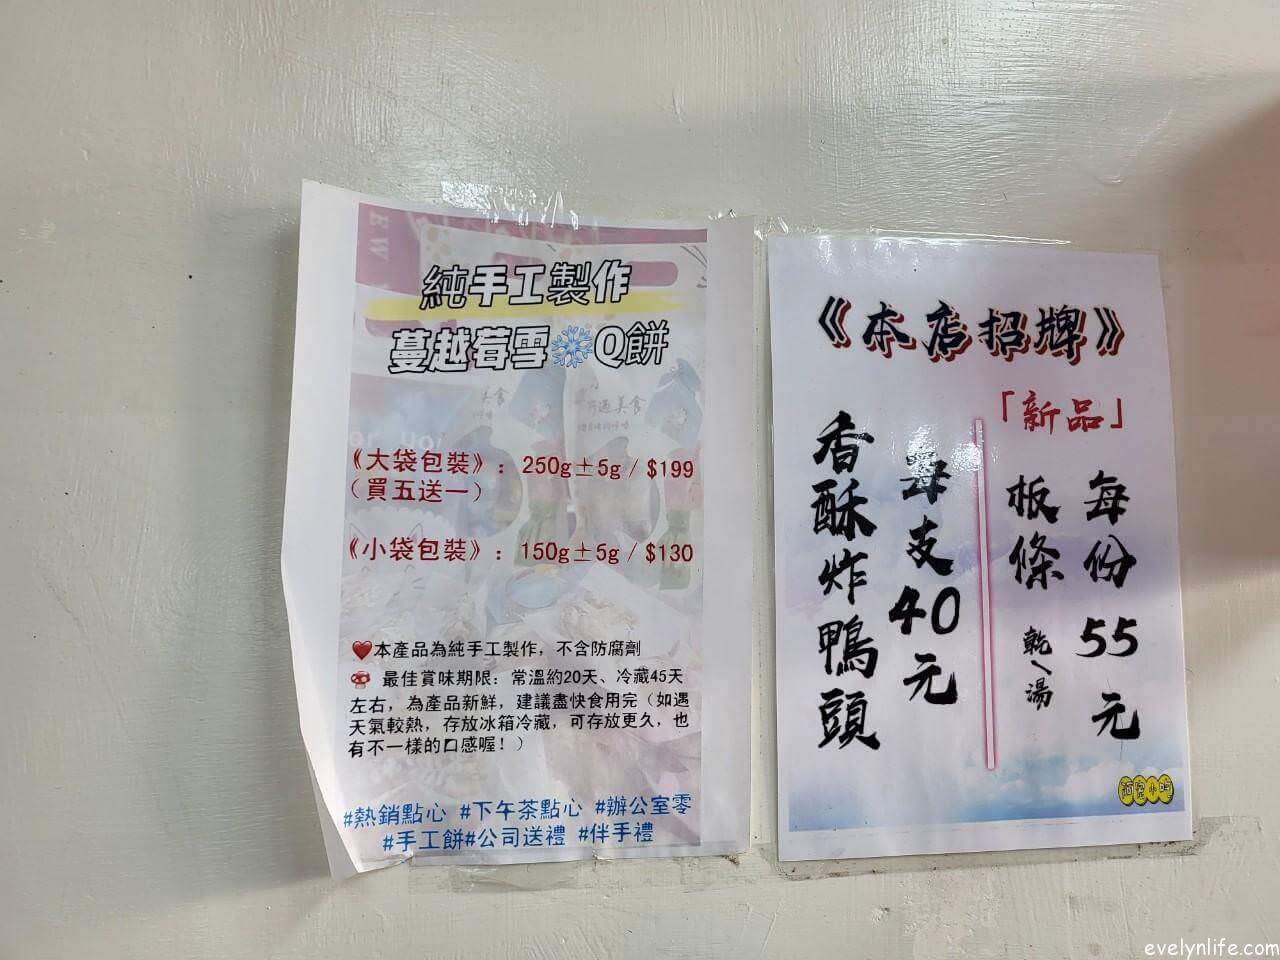 純手工製作
蔓越莓雪Q餅
《大袋包裝》：250g±5g / $199
（買五送一）
《小袋包裝》：150g±5g / $130
本產品為純手工製作，不含防腐劑
最佳賞味期限：常溫約20天、冷藏45天
左右，為產品新鮮，建議盡快食用完（如遇
天氣較熱，存放冰箱冷藏，可存放更久，也
有不一樣的口感喔！）
#熱銷點心 #下午茶點心 #辦公室零
#手工餅#公司送禮 #伴手禮
《本店招牌》
「新品」
每份55元
板條 乾、湯
每支40元
香酥炸鴨頭
evelynlife.com